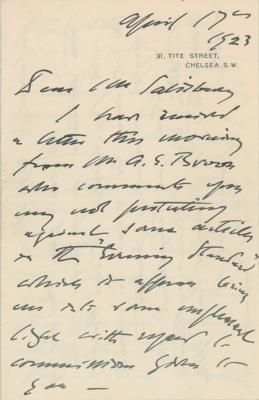 April 17th
1923
31, TITE STREET,
CHELSEA. S.W.
Dear Mr Salisbury
I have received
a letter this morning
from Mr A. G. Brown
who comments upon
my not protesting
against some articles
in the "Evening Standard"
which it appears bring
me into some unpleasant
light with regard to
commissions given to
you —